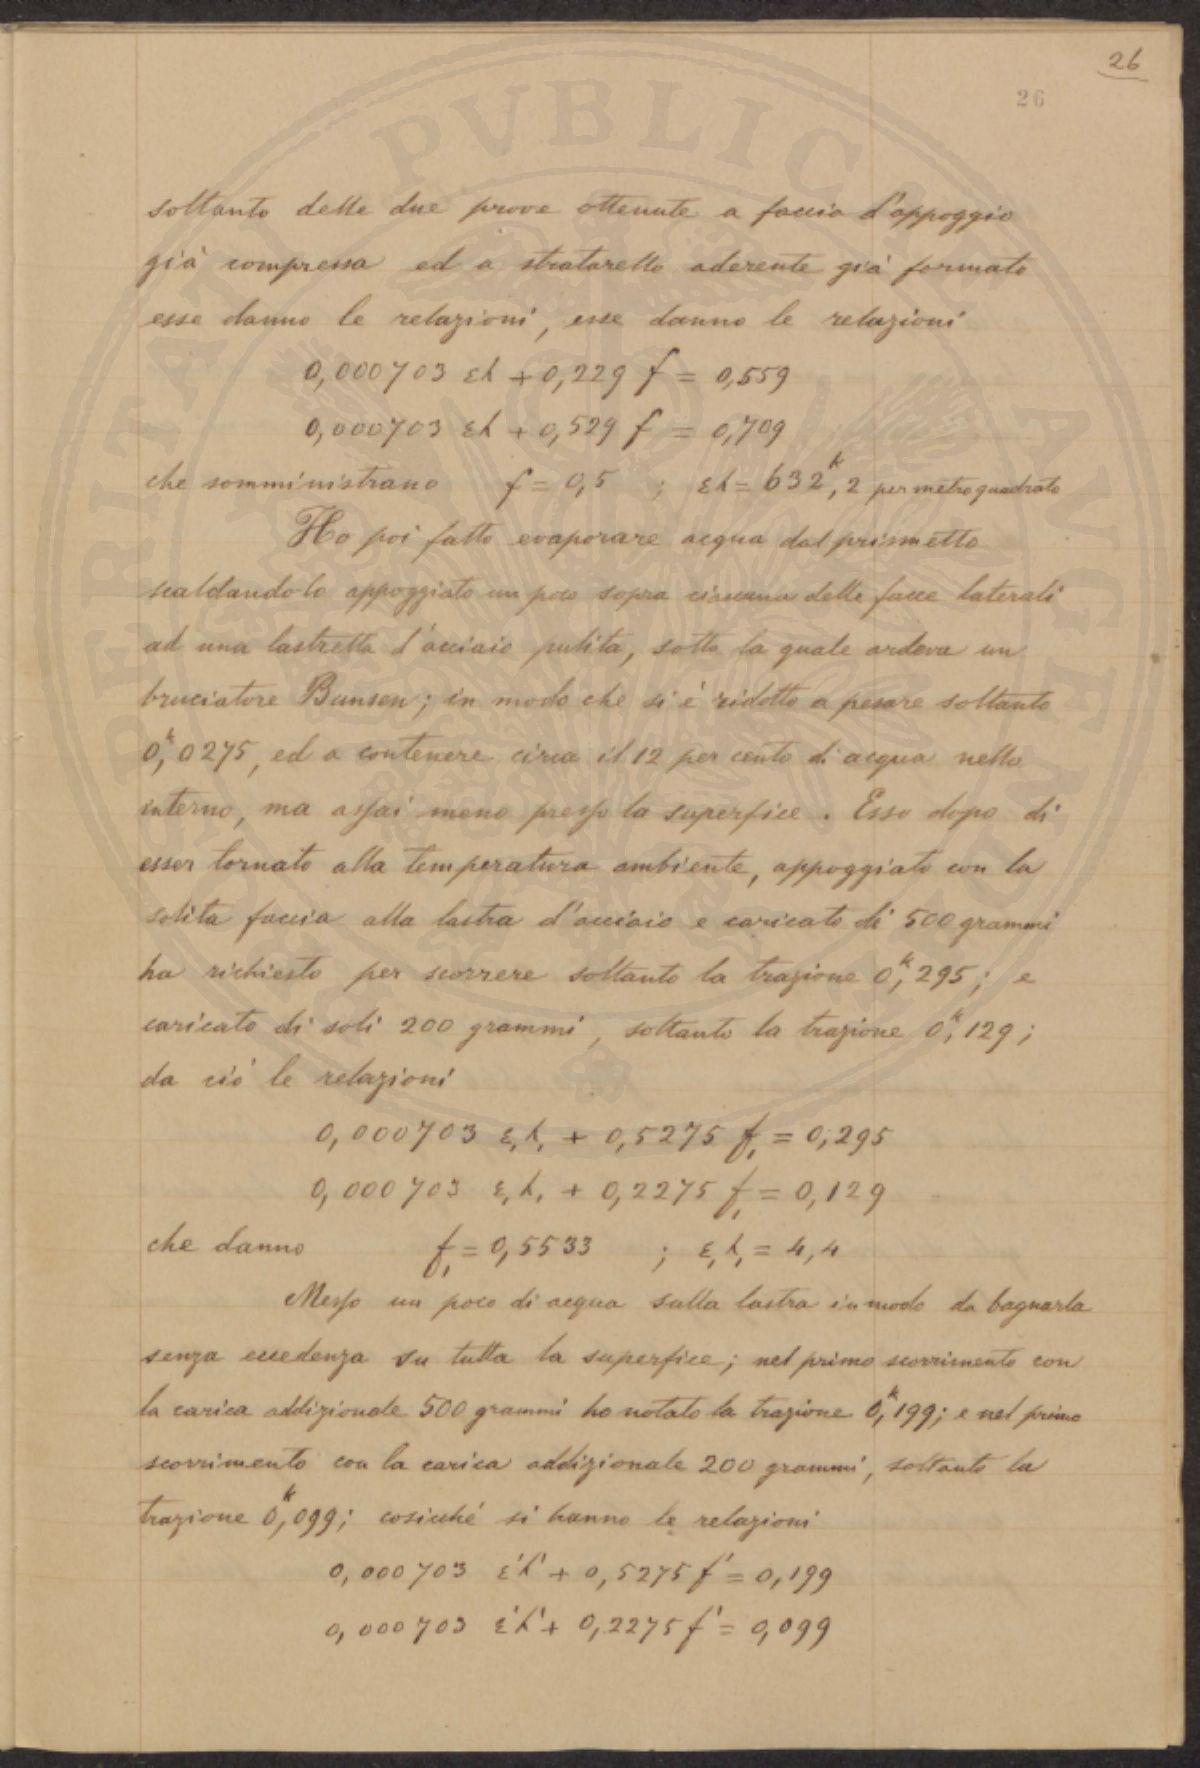 26
26
soltanto delle due prove ottenute a faccia d'appoggio
già compressa ed a stratarello aderente già formato
esse danno le relazioni, esse danno le relazioni
0,000703 ελ + 0,229 f = 0,559
0,000703 ελ + 0,529 f = 0,709
che somministrano f = 0,5 ; ελ = 632ᵏ,2 per metro quadrato
Ho poi fatto evaporare acqua dal prismetto
scaldandolo appoggiato un poco sopra ciascuna delle facce laterali
ad una lastretta d'acciaio pulita, sotto la quale ardeva un
bruciatore Bunsen; in modo che si è ridotto a pesare soltanto
0ᵏ,0275, ed a contenere circa il 12 per cento di acqua nello
interno, ma assai meno presso la superfice. Esso dopo di
esser tornato alla temperatura ambiente, appoggiato con la
solita faccia alla lastra d'acciaio e caricato di 500 grammi
ha richiesto per scorrere soltanto la trazione 0ᵏ,295; e
caricato di soli 200 grammi, soltanto la trazione 0ᵏ,129;
da ciò le relazioni
0,000703 ε,λ, + 0,5275 f, = 0,295
0,000703 ε,λ, + 0,2275 f, = 0,129
che danno f, = 0,5533 ; ε,λ, = 4,4
Messo un poco di acqua sulla lastra in modo da bagnarla
senza eccedenza su tutta la superfice; nel primo scorrimento con
la carica addizionale 500 grammi ho notato la trazione 0ᵏ,199; e nel primo
scorrimento con la carica addizionale 200 grammi, soltanto la
trazione 0ᵏ,099; cosicché si hanno le relazioni
0,000703 ε'λ' + 0,5275 f' = 0,199
0,000703 ε'λ' + 0,2275 f' = 0,099